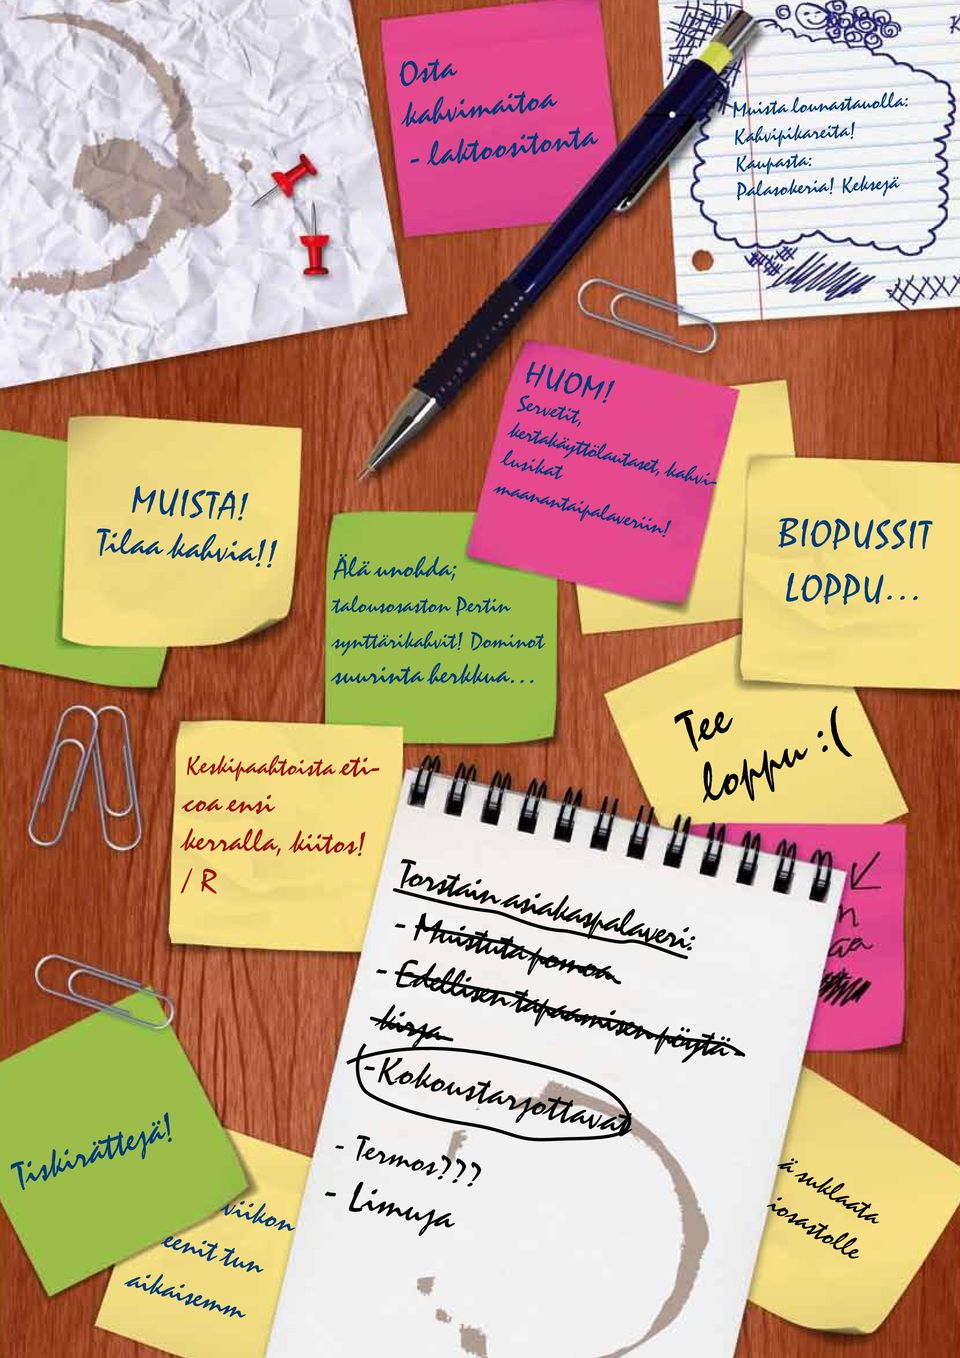 Osta
kahvimaitoa
- laktoositonta
Muista lounastauolla:
Kahvipikareita!
Kaupasta:
Palasokeria! Keksejä
HUOM!
Servetit,
kertakäyttölautaset, kahvi-
lusikat
maanantaipalaveriin!
MUISTA!
Tilaa kahvia!!
Älä unohda;
talousosaston Pertin
synttärikahvit! Dominot
suurinta herkkua...
BIOPUSSIT
LOPPU...
Tee
loppu :(
Keskipaahtoista eti-
coa ensi
kerralla, kiitos!
/ R
Torstain asiakaspalaveri:
- Muistuta pomoa
- Edellisen tapaamisen pöytä-
kirja
- Kokoustarjottavat
- Termos???
- Limuja
Tiskirättejä!
viikon
eenit tun
aikaisemm
ä suklaata
iosastolle